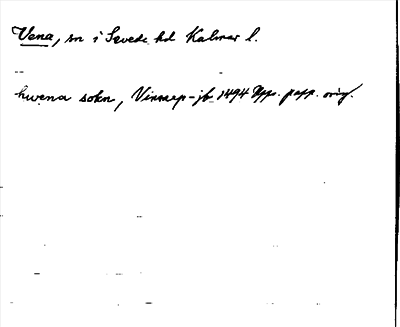 Vena, sn i Sevede hd Kalmar l.
hwena sokn, Vinnarp-jb 1494 Upps. papp. orig.